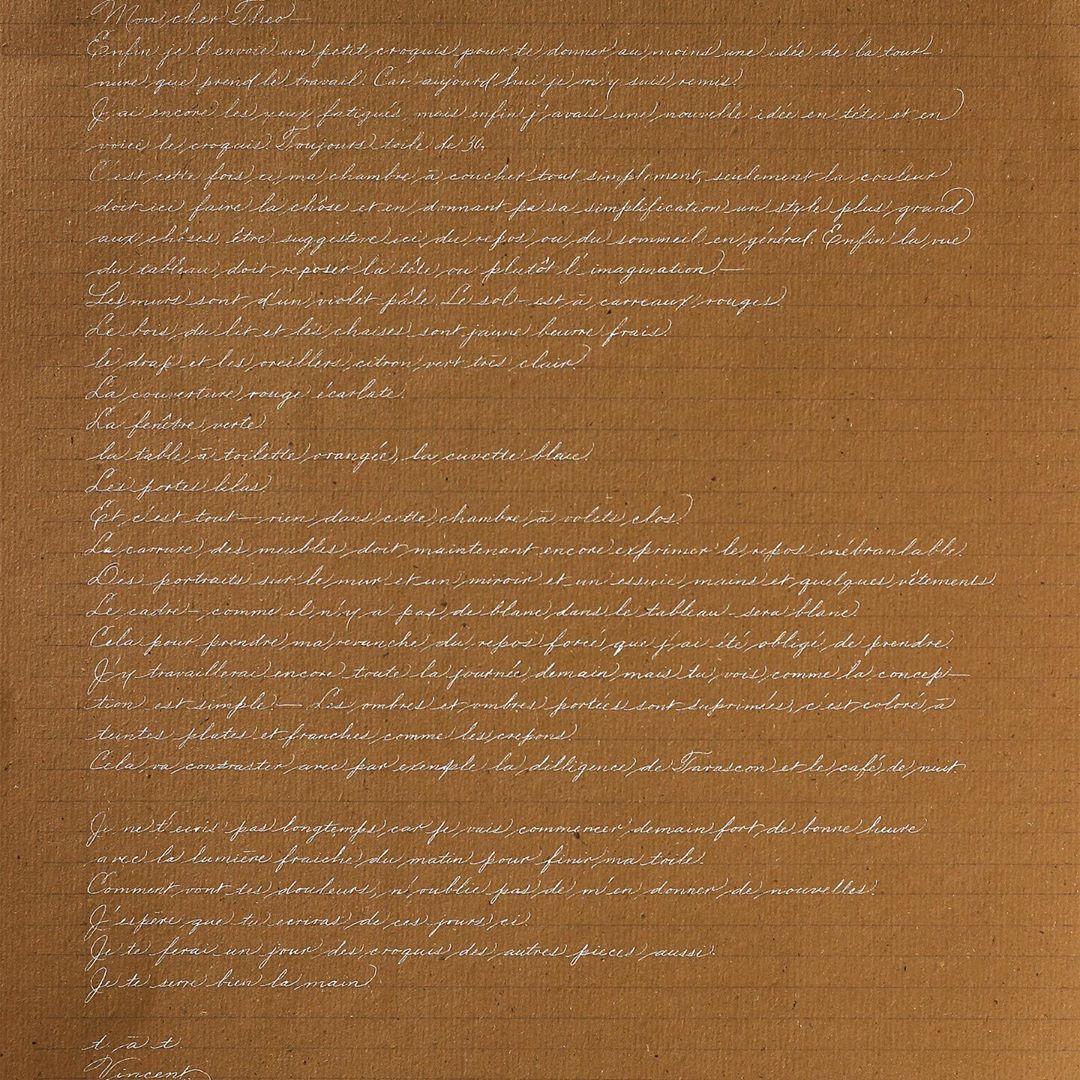 Mon cher Theo —
Enfin je t'envoie un petit croquis pour te donner au moins une idée de la tour-
nure que prend le travail. Car aujourd'hui je m'y suis remis.
J'ai encore les yeux fatigués mais enfin j'avais une nouvelle idée en tête et en
voici le croquis. Toujours toile de 30.
C'est cette fois ci ma chambre à coucher tout simplement, seulement la couleur
doit ici faire la chôse et en donnant par sa simplification un style plus grand
aux chôses, être suggestive ici du repos ou du sommeil en général. Enfin la vue
du tableau doit reposer la tête ou plutôt l'imagination. —
Les murs sont d'un violet pâle. Le sol — est à carreaux rouges.
Le bois du lit et les chaises sont jaune beurre frais.
le drap et les oreillers citron vert très clair.
La couverture rouge écarlate.
La fenêtre verte.
la table à toilette orangée, la cuvette bleue.
Les portes lilas.
Et c'est tout — rien dans cette chambre à volets clos.
La carrure des meubles doit maintenant encore exprimer le repos inébranlable.
Des portraits sur le mur et un miroir et un essuie mains et quelques vêtements.
Le cadre — comme il n'y a pas de blanc dans le tableau — sera blanc.
Cela pour prendre ma revanche du repos forcé que j'ai été obligé de prendre.
J'y travaillerai encore toute la journée demain, mais tu vois comme la concep-
tion est simple. — Les ombres et ombres portées sont suprimées, c'est coloré à
teintes plates et franches comme les crepons.
Cela va contraster avec par exemple la dilligence de Tarascon et le café de nuit.
Je ne t'écris pas longtemps car je vais commencer demain fort de bonne heure
avec la lumière fraiche du matin pour finir ma toile.
Comment vont tes douleurs, n'oublie pas de m'en donner de nouvelles.
J'espère que tu ecriras de ces jours ci.
Je te ferai un jour des croquis des autres pièces aussi.
Je te serre bien la main.
t. à t.
Vincent